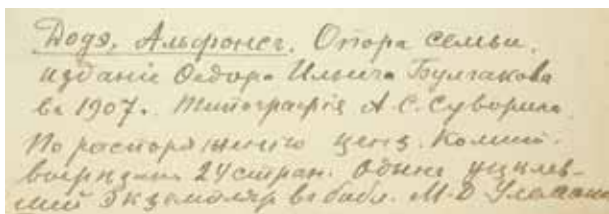 Додэ, Альфонсъ. Опора семьи.
изданіе Ѳедора Ильича Булгакова
въ 1907. Типографія А. С. Суворина
По распоряженію ценз. Комит.
вырѣзан 24 стран. Одинъ уцѣлев-
шій экземпляръ въ библ. М. Д.